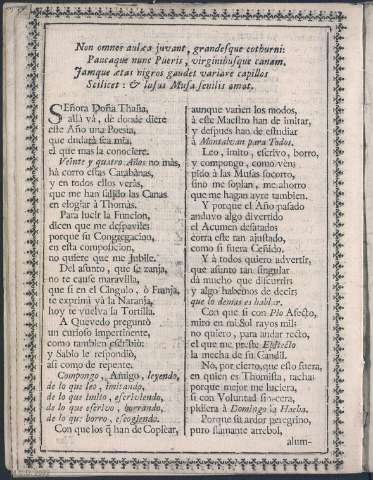 Non omnes aulæa juvant, grandesque cothurni:
Paucaque nunc Pueris, virginibusque canam.
Jamque ætas nigros gaudet variare capillos
Scilicet: & lusus Musa senilis amat.
SEñora Doña Thalia,
allà và, de donde diere
este Año una Poesia,
que dudarà sea mia,
el que mas la conociere.
Veinte y quatro Años no màs,
hà corro estas Carabanas,
y en todos ellos veràs,
que me han salido las Canas
en elogiar à Thomàs.
Para lucir la Funcion,
dicen que me despaviles
porque su Congregacion,
en esta composicion,
no quiere que me Jubile.
Del asunto, que se zanja,
no te cause maravilla,
que si en el Cingulo, ò Franja,
te exprimì yà la Naranja,
hoy te vuelva la Tortilla.
A Quevedo preguntò
un curioso impertinente,
como tambien escribiò:
y Sabio le respondiò,
asi como de repente.
Compongo, Amigo, leyendo,
de lo que leo, imitando,
de lo que imito, escriviendo,
de lo que escrivo, borrando,
de lo que borro, escogiendo.
Con que los q̃ han de Coplear,
aunque varien los modos,
à este Maestro han de imitar,
y despues han de estudiar
à Montalvan para Todos.
Leo, imito, escrivo, borro,
y compongo, como vèn;
pido à las Musas socorro,
sino me soplan, me ahorro
que me hagan ayre tambien.
Y porque el Año pasado
anduvo algo divertido
el Acumen desatado
corra este tan ajustado,
como si fuera Ceñido.
Y à todos quiero advertir,
que asunto tan singular
dà mucho que discurrir;
y algo habemos de decir;
que lo demàs es hablar.
Con que si con Pio Afecto,
miro en mi Sol rayos mil;
no quiero, para andar recto,
el que me preste Epicteto
la mecha de su Candil.
No, por cierto, que esto fuera,
en quien es Thomista, racha:
porque mejor me luciera,
si con Voluntad sincera,
pidiera à Domingo la Hacha.
Porque su ardor peregrino,
puro flamante arrebol,
alum-